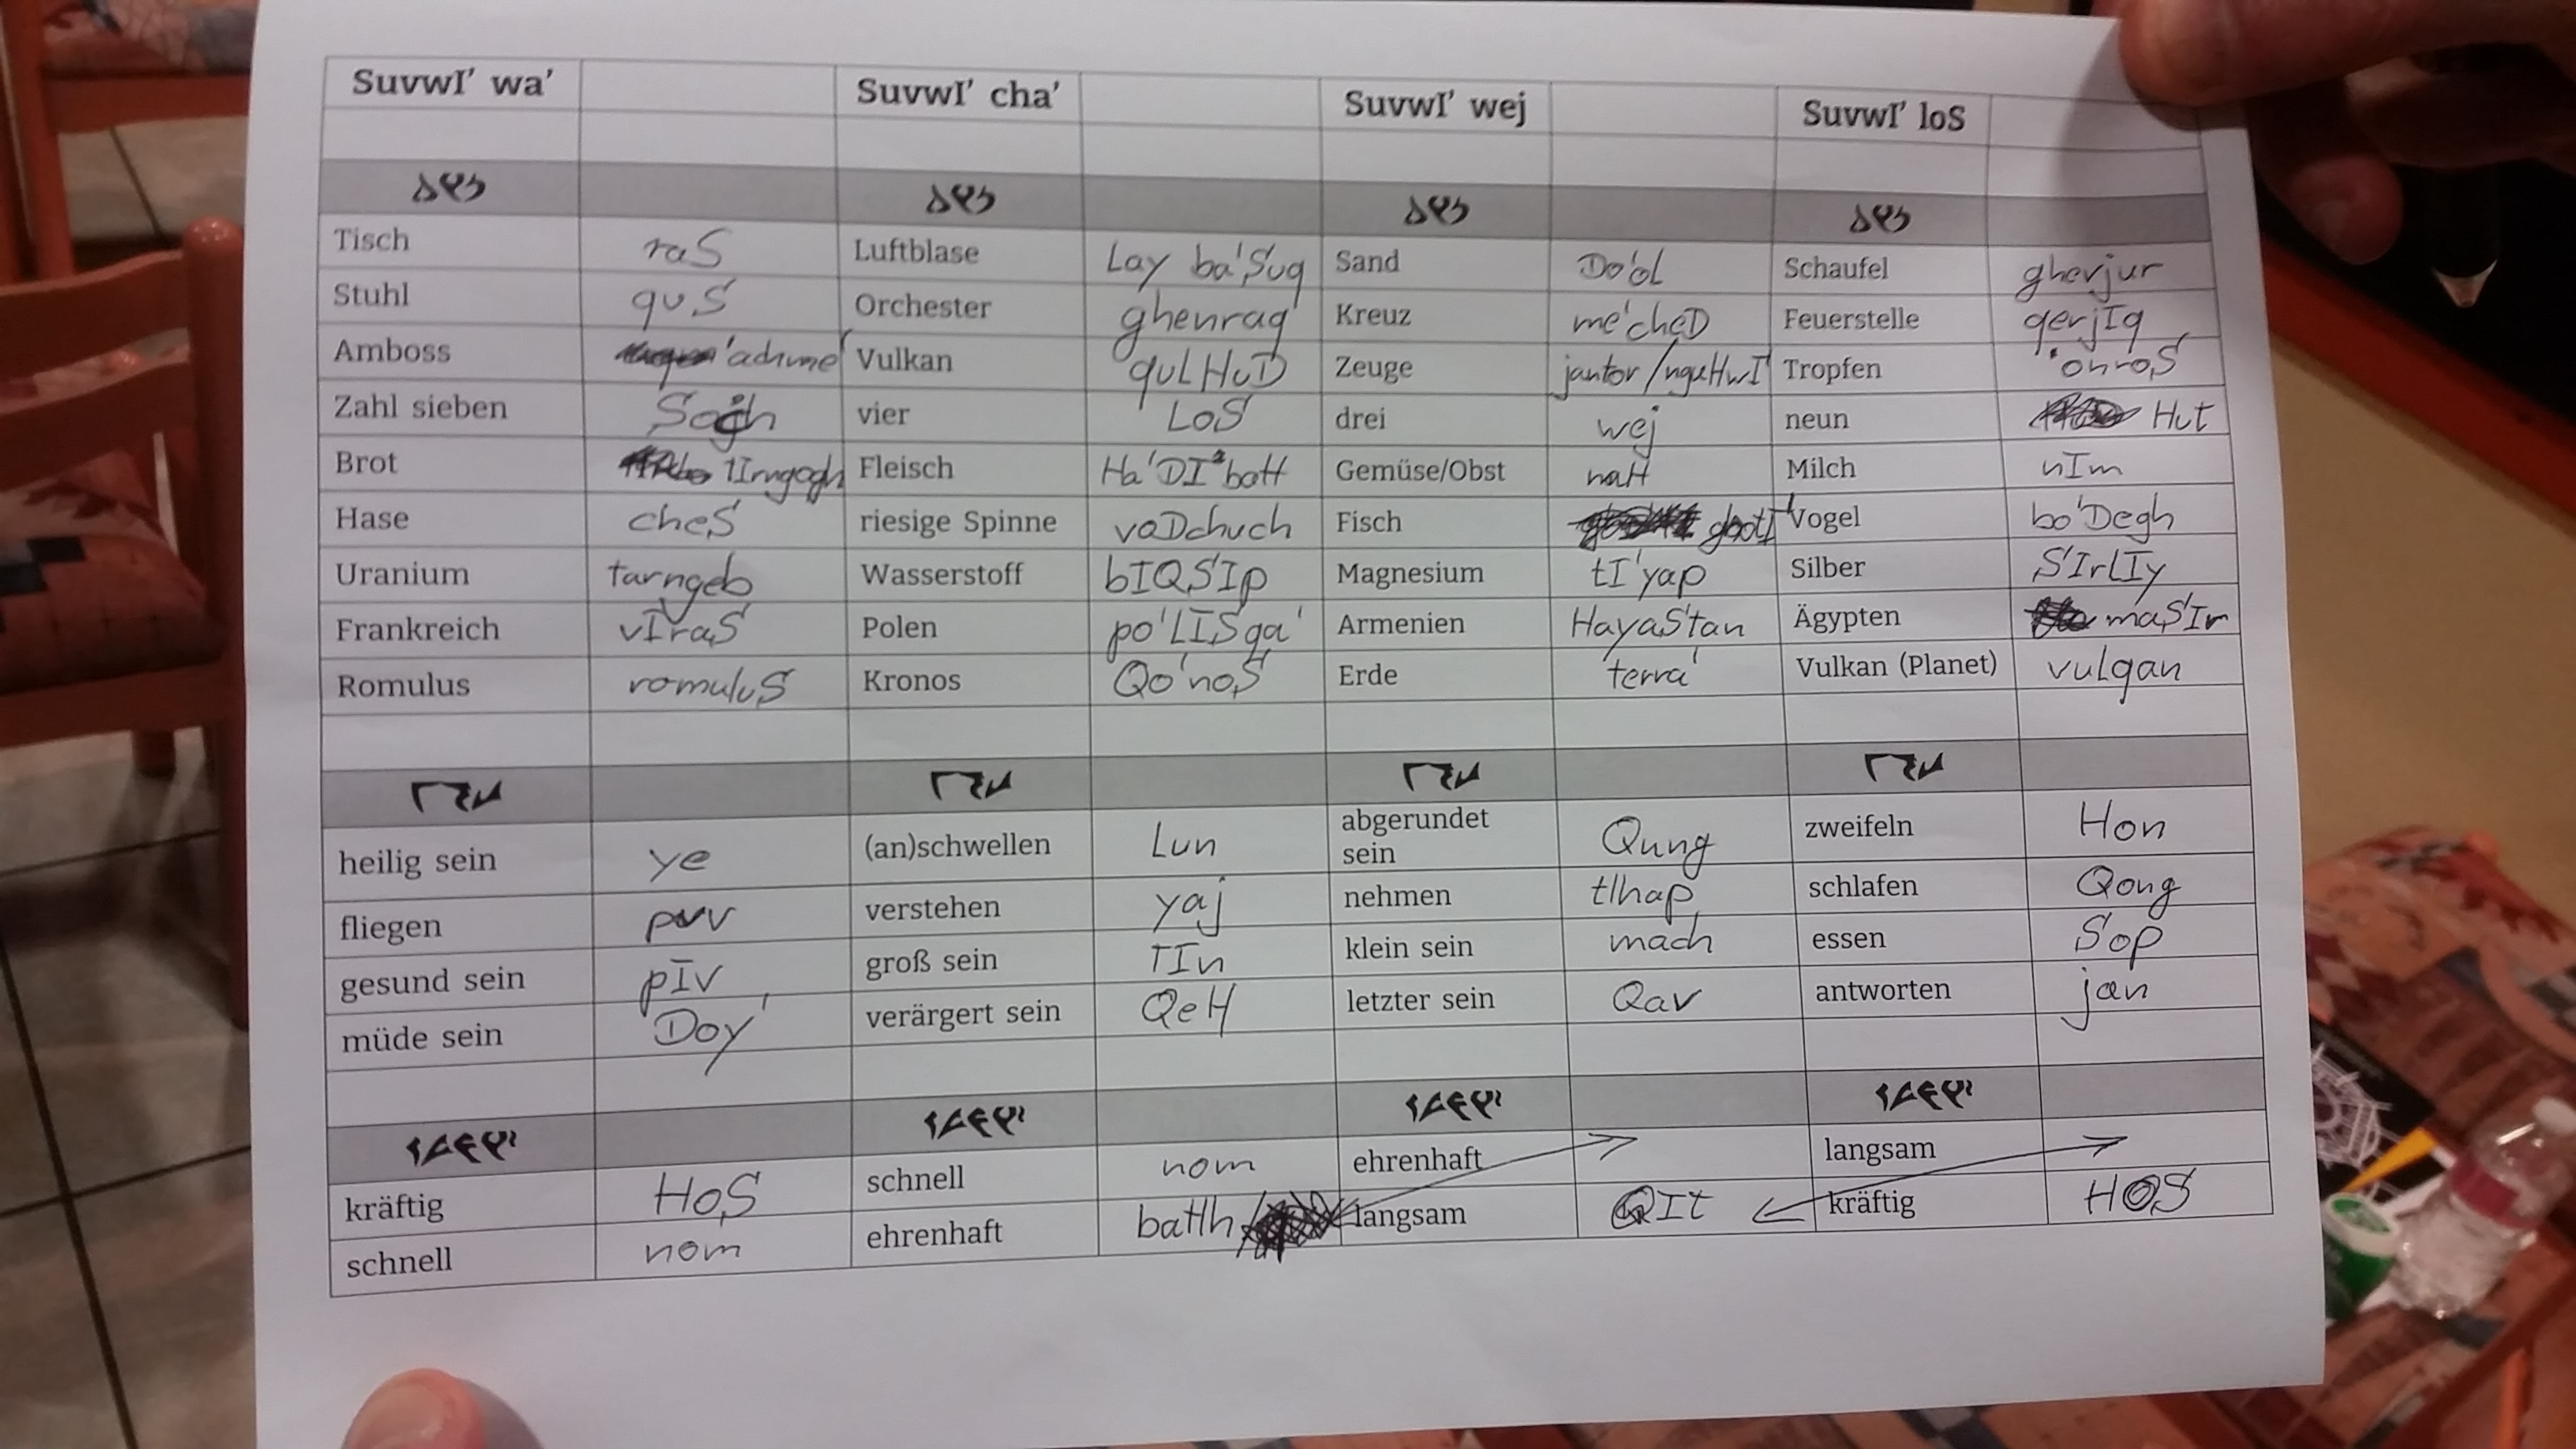 SuvwI' wa' SuvwI' cha' SuvwI' wej SuvwI' loS
   
Tisch raS Luftblase Lay ba'Suq Sand Do'ol Schaufel ghevjur
Stuhl quS Orchester ghenraq Kreuz me'cheD Feuerstelle qerjIq
Amboss Vulkan qulHuD Zeuge jantor/nguHwI' Tropfen 'onroS
Zahl sieben Sogh vier LoS drei wej neun Hut
Brot tIrngogh Fleisch Ha'DI'baH Gemüse/Obst naH Milch nIm
Hase cheS riesige Spinne vaDchuch Fisch ghotI' Vogel bo'Degh
Uranium tarngeb Wasserstoff bIQSIp Magnesium tI'yap Silber SIrlIy
Frankreich vIraS Polen po'LISqa' Armenien HayaStan Ägypten maSIr
Romulus romuluS Kronos Qo'noS Erde terra' Vulkan (Planet) vulqan
   
heilig sein ye (an)schwellen Lun abgerundet sein Qung zweifeln Hon
fliegen puv verstehen yaj nehmen tlhap schlafen Qong
gesund sein pIv groß sein TIn klein sein mach essen Sop
müde sein Doy' verärgert sein QeH letzter sein Qav antworten jan
   
kräftig HoS schnell nom ehrenhaft langsam
schnell nom ehrenhaft batlh langsam QIt kräftig HoS